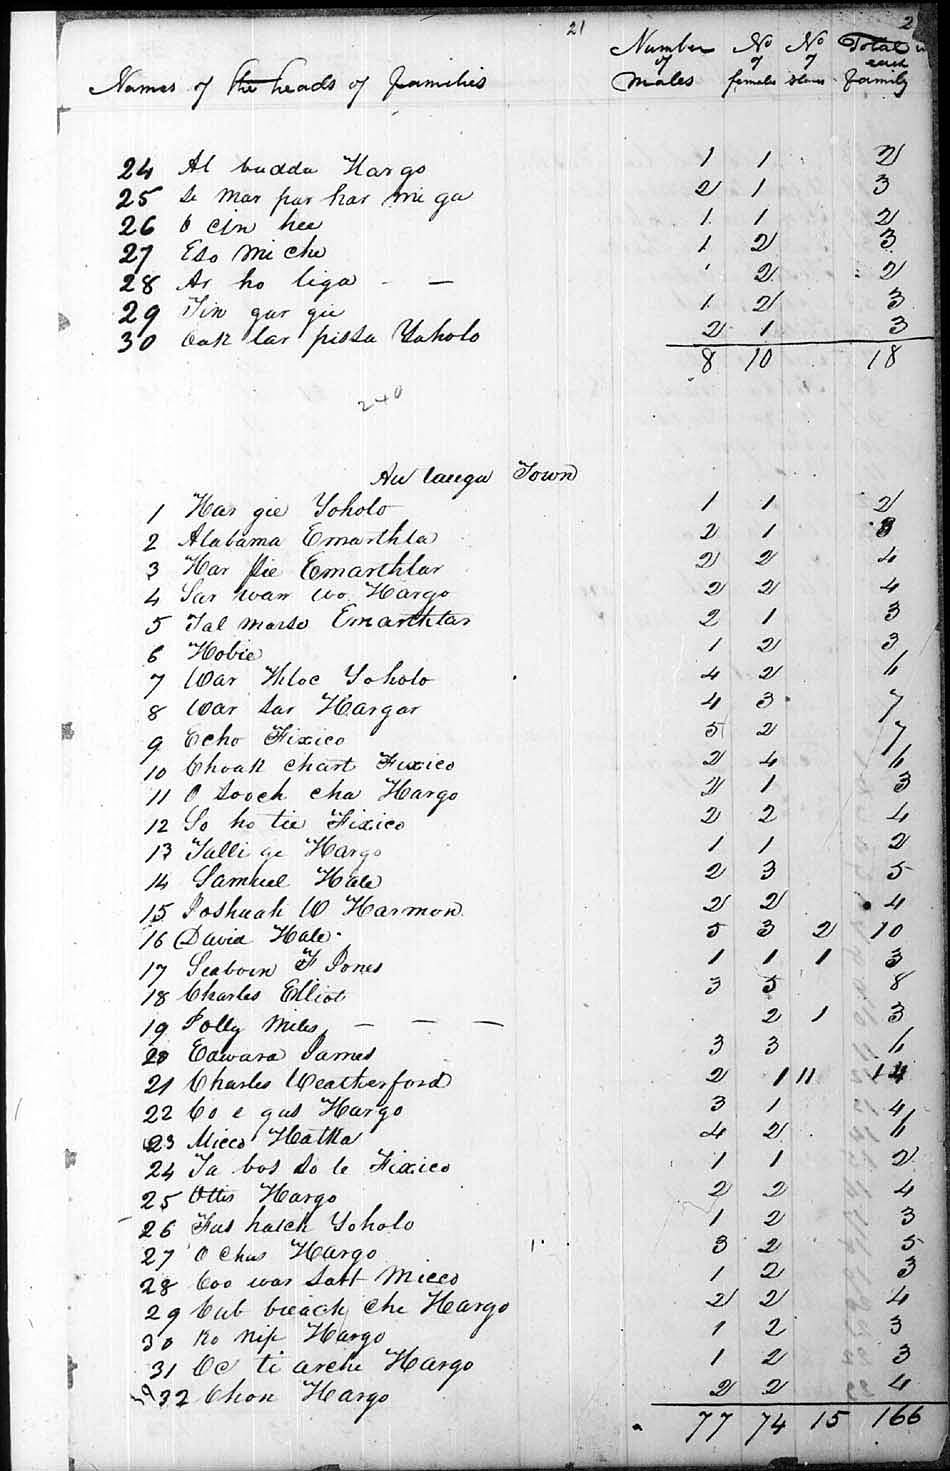 21
2
Names of the heads of families Number of Males No of females No of slaves Total in each family
24 Al budda Hargo 1 1 2
25 Se mar par har mi ga 2 1 3
26 O cin hee 1 1 2
27 Eso Mi che 1 2 3
28 Ar ho liga - — 2 2
29 Tin gar gie 1 2 3
30 Oak lar pissa Yoholo 2 1 3
8 10 18
240
Au tauga Town
1 Har gie Yoholo 1 1 2
2 Alabama Emarthla 2 1 3
3 Har Jie Emarthlar 2 2 4
4 Sar warr wo Hargo 2 2 4
5 Tal marso Emarthlar 2 1 3
6 Hobie 1 2 3
7 War Khloc Yoholo 4 2 6
8 War sar Hargar 4 3 7
9 Echo Fixico 5 2 7
10 Choak chart Fixico 2 4 6
11 O sooch cha Hargo 2 1 3
12 So ho tie Fixico 2 2 4
13 Talli ge Hargo 1 1 2
14 Samuel Hale 2 3 5
15 Joshuah W Harmon 2 2 4
16 David Hale 5 3 2 10
17 Seaborn F Jones 1 1 1 3
18 Charles Elliot 3 5 8
19 Polly Miles — — — 2 1 3
20 Edward James 3 3 6
21 Charles Weatherford 2 1 11 14
22 Co e gus Hargo 3 1 4
23 Micco Hatka 4 2 6
24 Ta bos so le Fixico 1 1 2
25 Ottis Hargo 2 2 4
26 Fus hatch Yoholo 1 2 3
27 O chus Hargo 3 2 5
28 Coo war satt Micco 1 2 3
29 Cub beach che Hargo 2 2 4
30 Ko nip Hargo 1 2 3
31 Oc ti arche Hargo 1 2 3
32 Chon Hargo 2 2 4
77 74 15 166